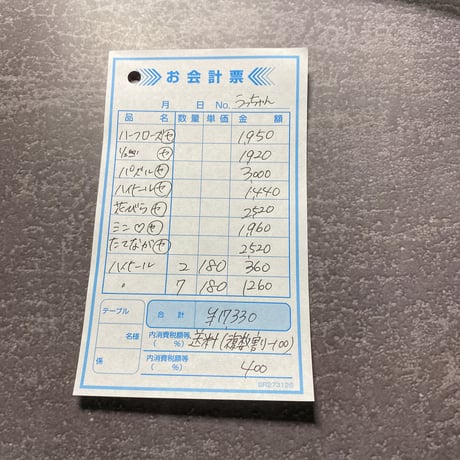 お会計票
月 日 No. うっちゃん
品 名 数量 単価 金 額
ハーフローズ㋝ 1,950
㋝ 1,920
パズル㋝ 3,000
ハイヒール㋝ 1,440
花びら㋝ 2,520
ミニ♡㋝ 1,960
たてなが㋝ 2,520
ハイヒール 2 180 360
〃 7 180 1260
テーブル 合 計 ¥17330
名様 内消費税額等 ( %) 送料(複数割-100)
係 内消費税額等 ( %) 400